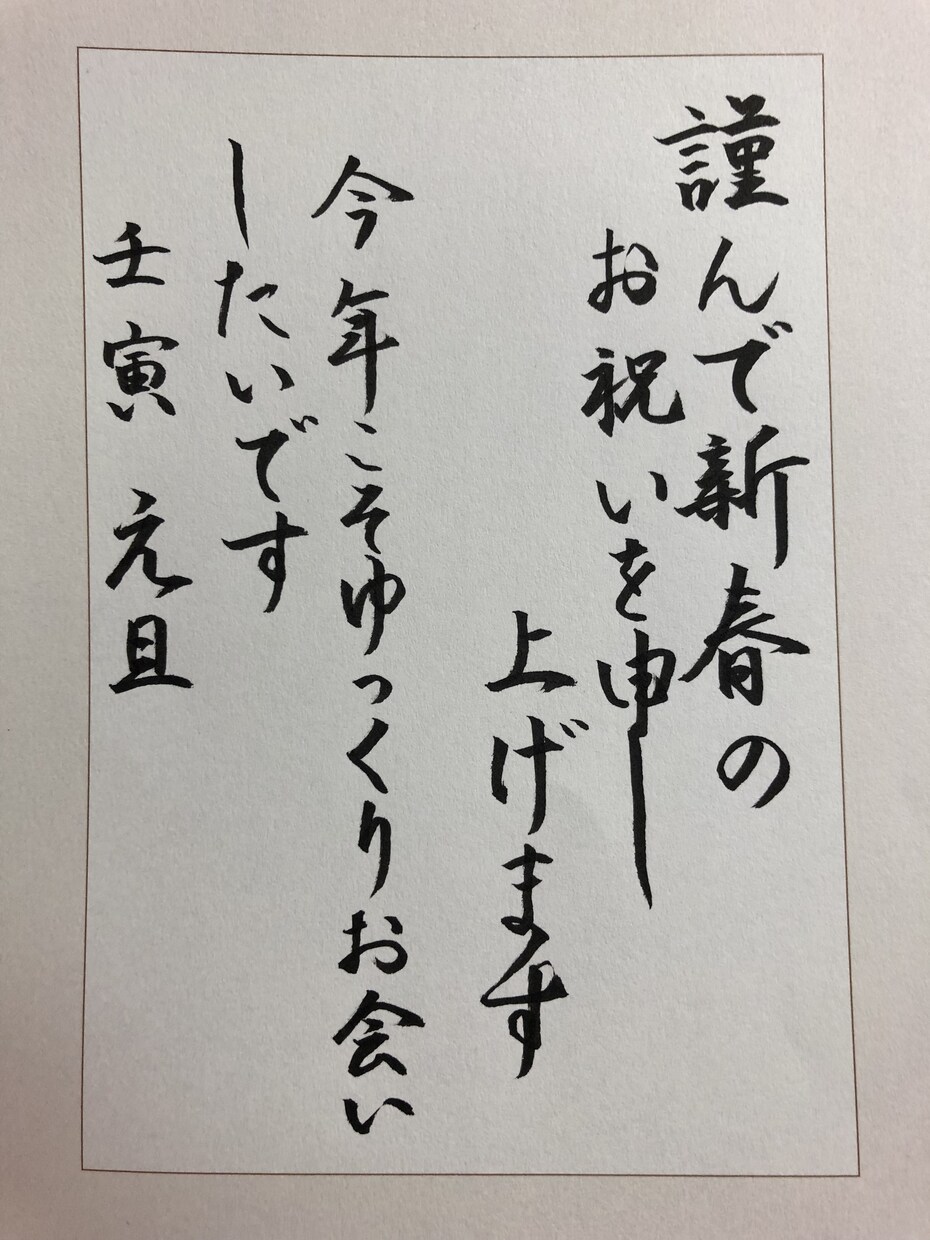 謹んで新春の
お祝いを申し
上げます
今年こそゆっくりお会い
したいです
壬寅 元旦